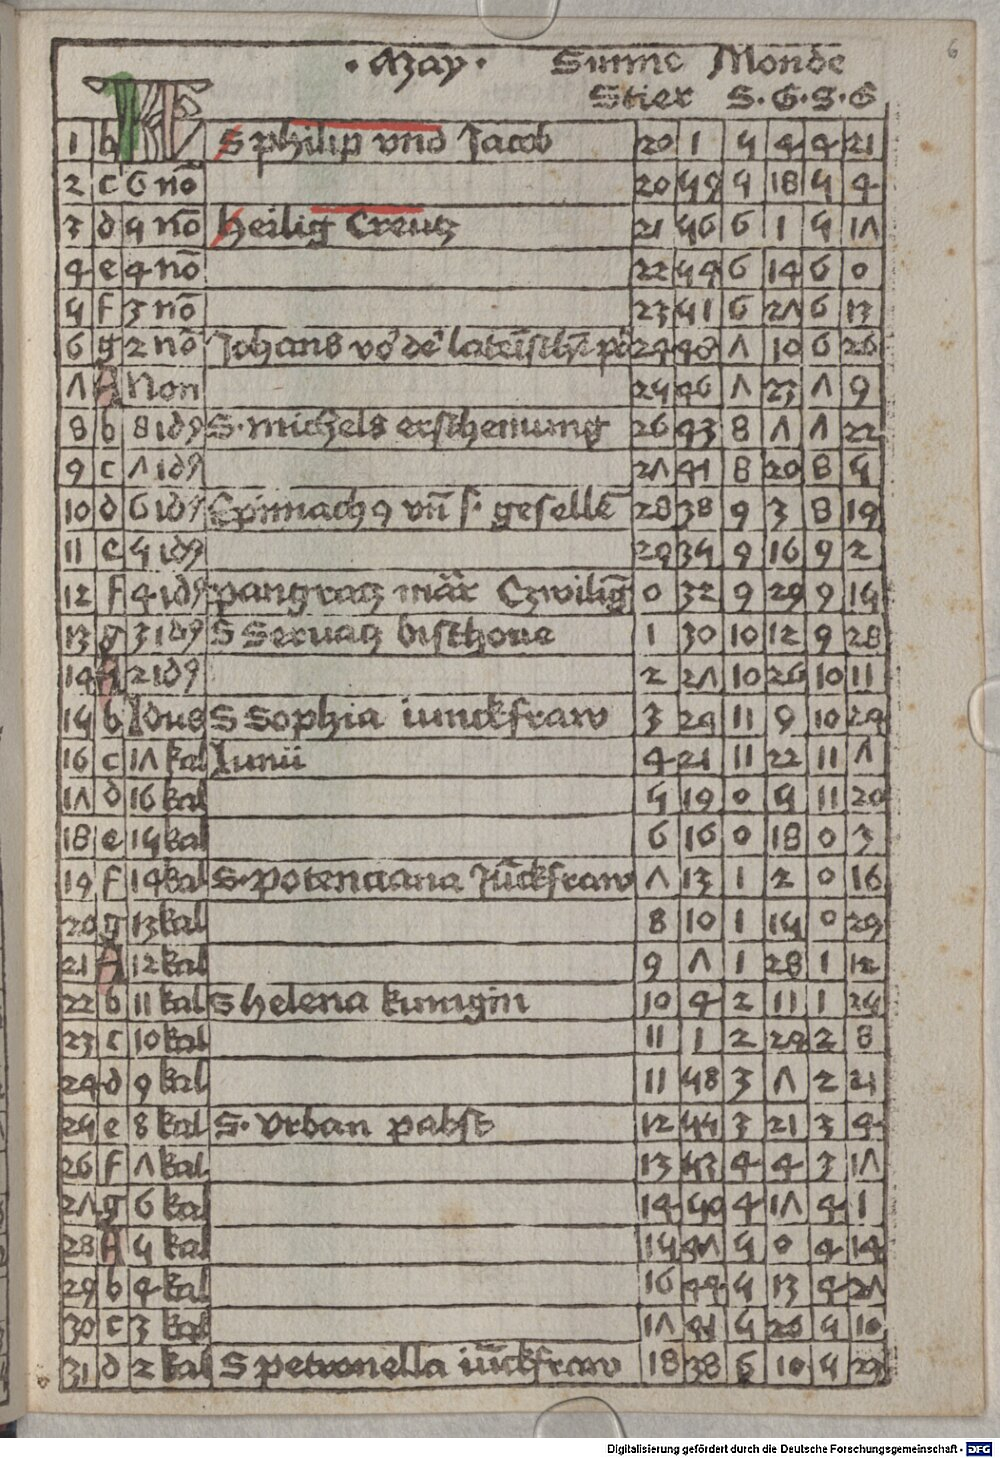 6
· May · Sunne Monde
Stier S · G · S · G
KL
1 b S philip vnd Jacob 20 1 5 4 4 21
2 c 6 nō 20 59 5 18 5 4
3 d 5 nō heilig Creutz 21 56 6 1 5 17
4 e 4 nō 22 54 6 14 6 0
5 f 3 nō 23 51 6 27 6 13
6 g 2 nō Johans vō de lateīschē 24 48 7 10 6 26
7 A Non 25 46 7 23 7 9
8 b 8 idꝰ S · michels erscheinung 26 43 8 7 7 22
9 c 7 idꝰ 27 41 8 20 8 5
10 d 6 idꝰ Epimachꝰ vn̄ s · geselle 28 38 9 3 8 19
11 e 5 idꝰ 29 35 9 16 9 2
12 f 4 idꝰ pangracz mär Czwilig 0 32 9 29 9 15
13 g 3 idꝰ S Seruacz bischoue 1 30 10 12 9 28
14 A 2 idꝰ 2 27 10 26 10 11
15 b Idus S Sophia iunckfraw 3 24 11 9 10 24
16 c 17 kal Iunii 4 21 11 22 11 7
17 d 16 kal 5 19 0 5 11 20
18 e 15 kal 6 16 0 18 0 3
19 f 14 kal S · potenciana Jūckfraw 7 13 1 2 0 16
20 g 13 kal 8 10 1 15 0 29
21 A 12 kal 9 7 1 28 1 12
22 b 11 kal S helena kunigin 10 4 2 11 1 25
23 c 10 kal 11 1 2 24 2 8
24 d 9 kal 11 58 3 7 2 21
25 e 8 kal S · Vrban pabst 12 55 3 21 3 4
26 f 7 kal 13 53 4 4 3 17
27 g 6 kal 14 50 4 17 4 1
28 A 5 kal 15 47 5 0 4 14
29 b 4 kal 16 44 5 13 4 27
30 c 3 kal 17 41 5 26 5 10
31 d 2 kal S petronella iūckfraw 18 38 6 10 5 23
Digitalisierung gefördert durch die Deutsche Forschungsgemeinschaft - DFG